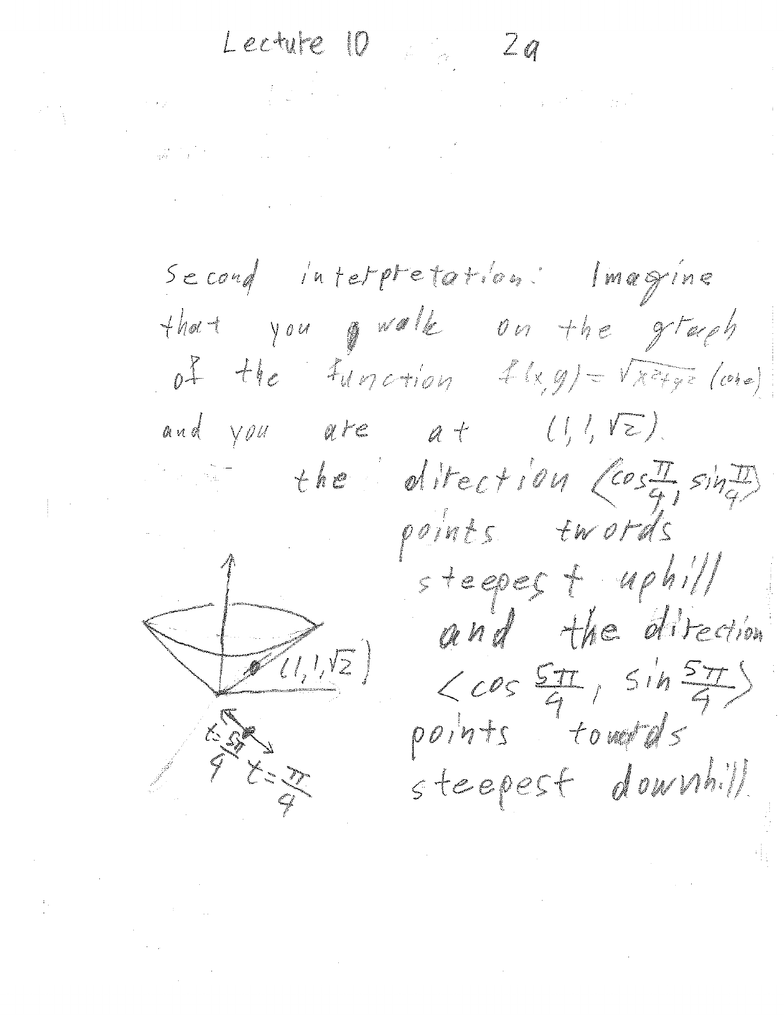 Lecture 10 2a
Second interpretation: Imagine
that you walk on the graph
of the function f(x,y)=√x²+y² (cone)
and you are at (1,1,√2).
the direction ⟨cos π/4, sin π/4⟩
points twords
steepest uphill
and the direction
⟨cos 5π/4, sin 5π/4⟩
points towards
steepest downhill.
(1,1,√2)
t=5π/4
t=π/4